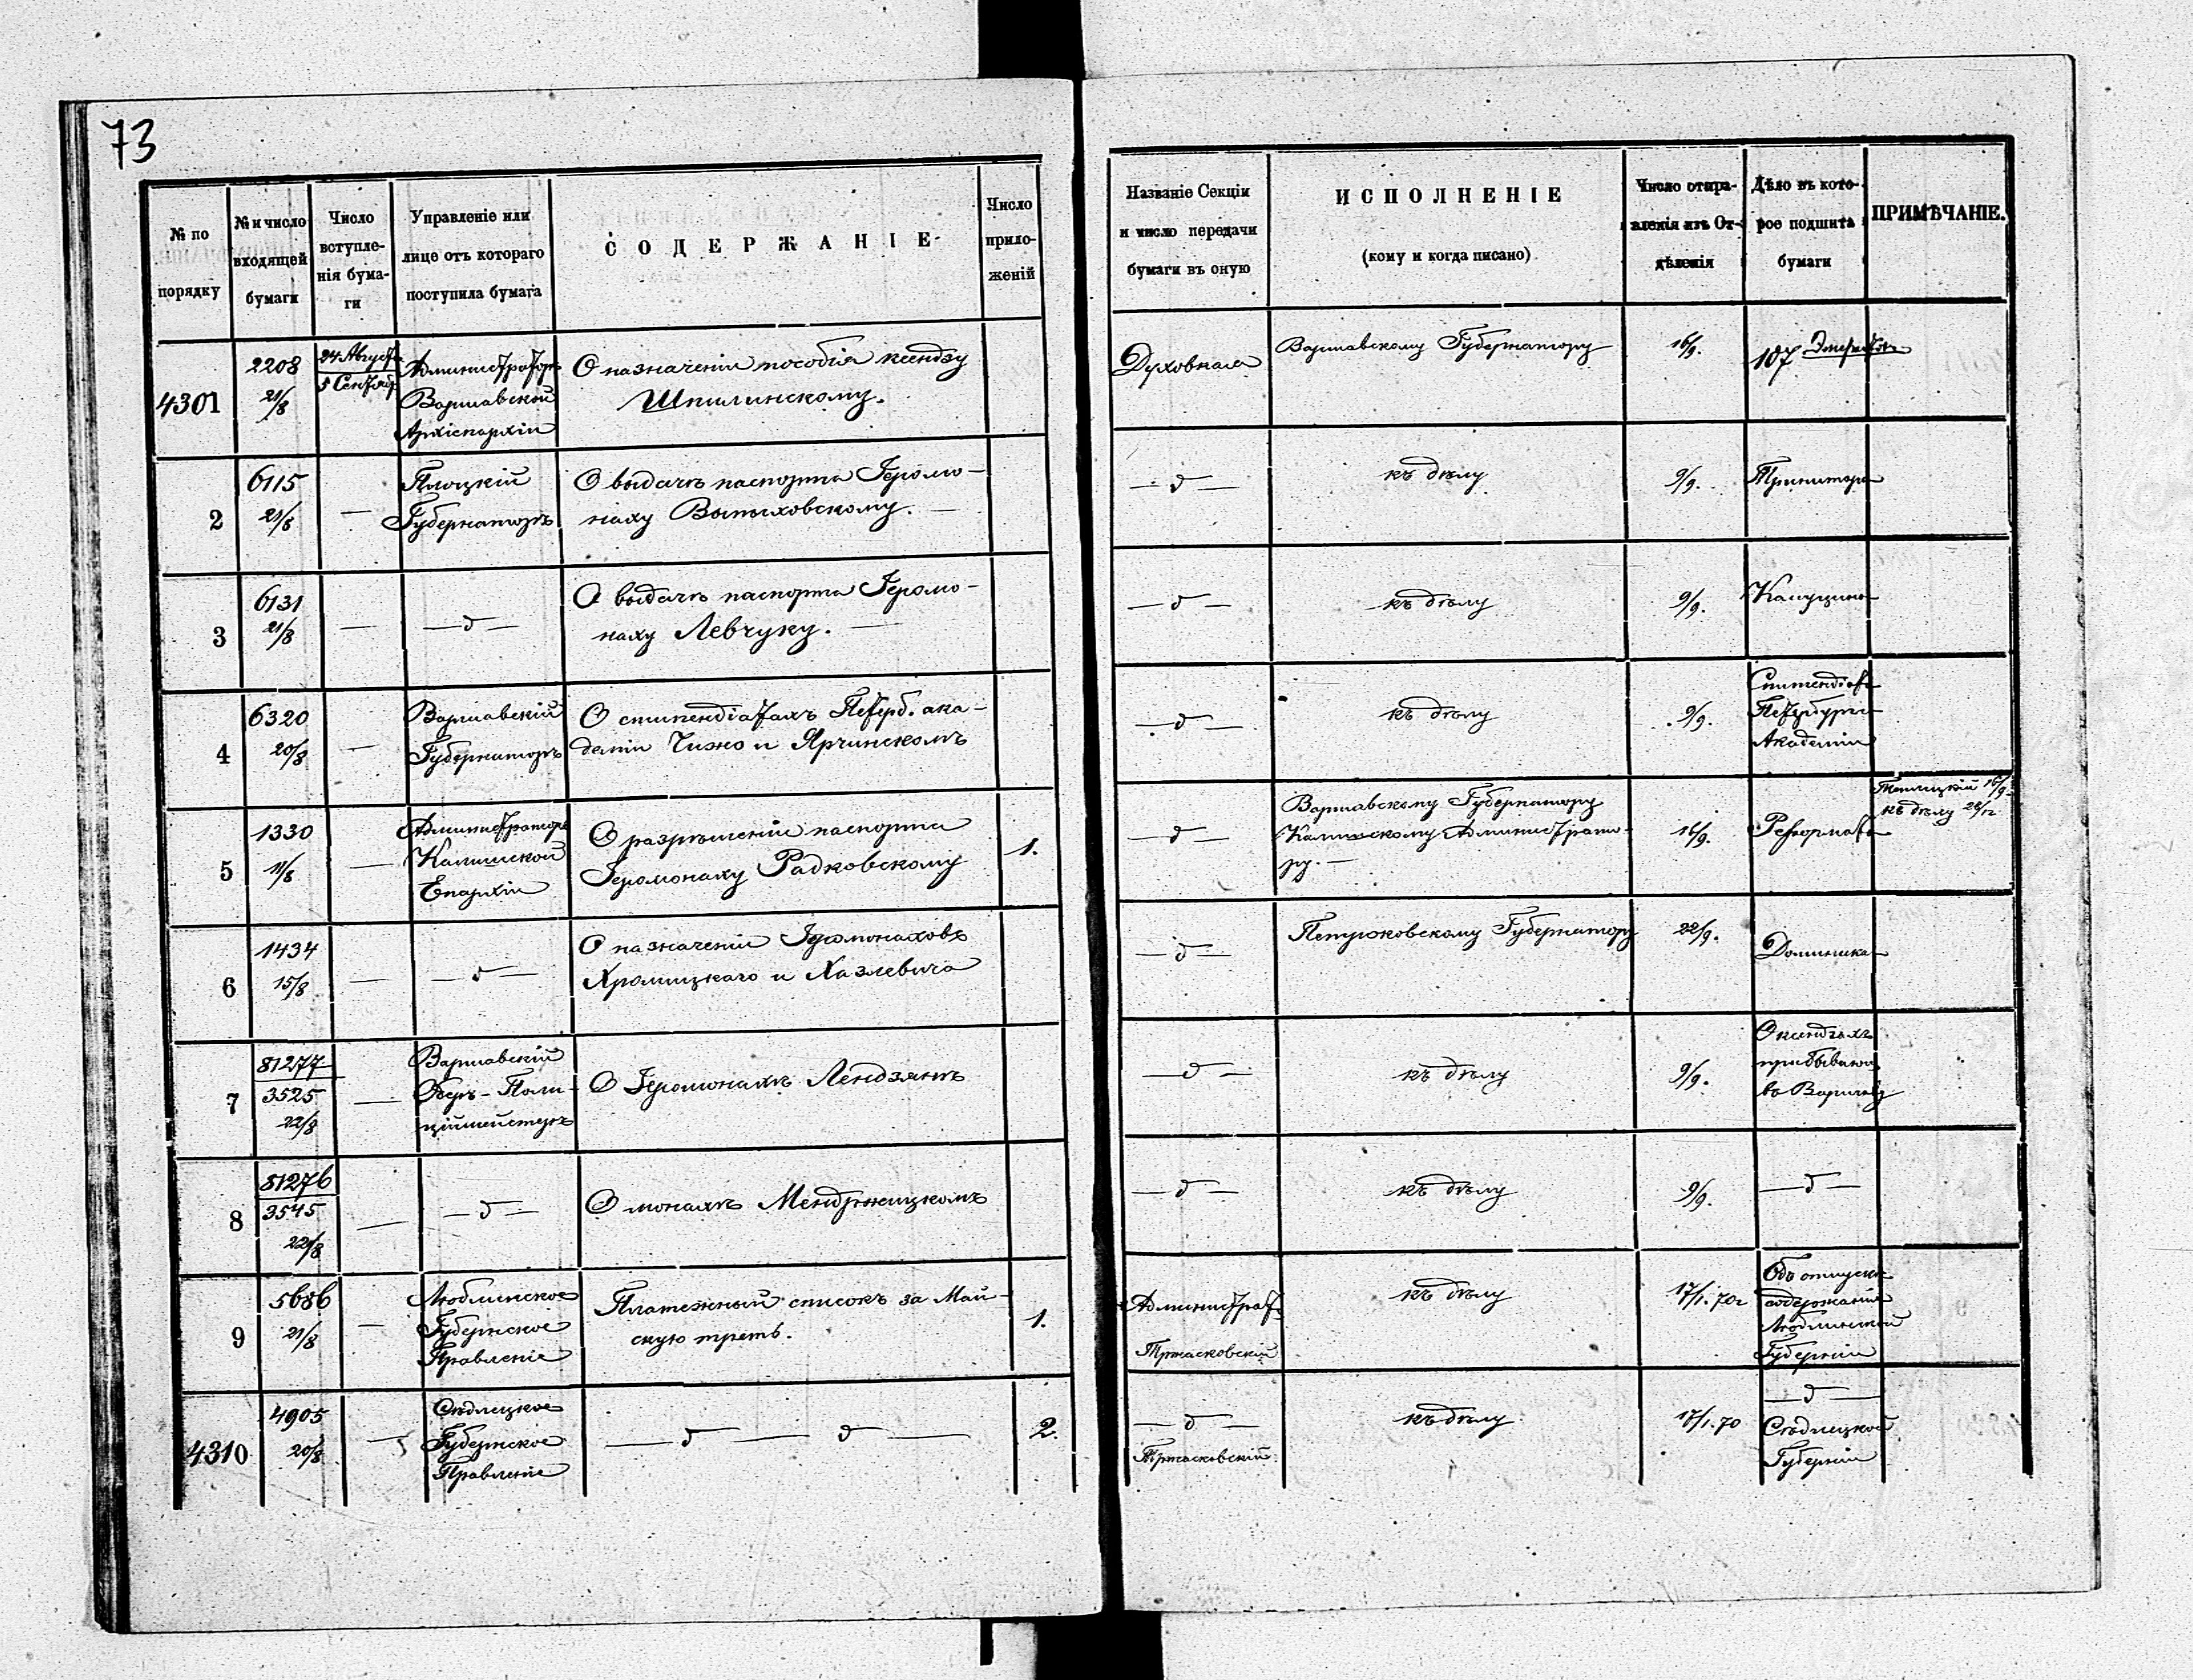 73
№ по порядку
№ и число входящей бумаги
Число вступле-нія бума-ги
Управленіе или лице отъ котораго поступила бумага
СОДЕРЖАНІЕ
Число прило-женій
Названіе Секціи и число передачи бумаги въ оную
ИСПОЛНЕНІЕ
(кому и когда писано)
Число отпра-вленія изъ От-дѣленія
Дѣло въ кото-рое подшита бумаги
ПРИМѢЧАНІЕ.
4301
2208
21/8
24 Августа
5 Сентяб
Администраторъ
Варшавской
Архіепархіи
О назначеніи пособія ксендзу
Шпилинскому.
Духовная
Варшавскому Губернатору
16/9.
107
2
6115
21/8
—
Плоцкій
Губернаторъ
О выдачѣ паспорта Іеромо-
наху Выпыховскому. —
— д —
къ дѣлу
9/9.
Тринитар
3
6131
21/8
—
— д —
О выдачѣ паспорта Іеромо-
наху Левчуку. —
— д —
къ дѣлу
9/9.
Капуцино
4
6320
20/8
—
Варшавскій
Губернаторъ
О стипендіатахъ Петерб. ака-
деміи Чижо и Ярчинскомъ
— д —
къ дѣлу
9/9.
Стипендіат
Петербургс
Академіи
5
1330
11/8
—
Администраторъ
Калишской
Епархіи
О разрѣшеніи паспорта
Іеромонаху Радковскому
1.
— д —
Варшавскому Губернатору
Калишскому Администрато-
ру. —
16/9.
Реформат
16/9.
къ дѣлу 28/12
6
1434
15/8
—
— д —
О назначеніи Іеромонаховъ
Хромицкаго и Хазлевича
— д —
Петроковскому Губернатору
22/9.
Доминика
7
81277
3525
22/8
—
Варшавскій
Оберъ-Поли-
ціймейстеръ
О Іеромонахѣ Лендзянѣ
— д —
къ дѣлу
9/9.
О ксендзахъ
прибываю
въ Варшаву
8
81276
3545
22/8
—
— д —
О монахѣ Мендржицкомъ
— д —
къ дѣлу
9/9.
— д —
9
5686
21/8
—
Люблинское
Губернское
Правленіе
Платежный списокъ за Май-
скую треть.
1.
Администрат
Тржасковскій
къ дѣлу
17/1. 70г
Объ отпускѣ
содержанія
Люблинской
Губерніи
4310
4905
20/8
—
Сѣдлецкое
Губернское
Правленіе
— д — д —
2.
— д —
Тржасковскій
къ дѣлу
17/1. 70
— д —
Сѣдлецкой
Губерніи